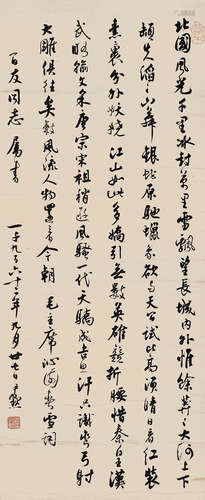 北國風光千里冰封萬里雪飄望長城內外惟餘莽〻大河上下
頓失滔〻山舞銀蛇原馳蠟象欲與天公試比高須晴日看紅裝
素裹分外妖嬈江山如此多嬌引無數英雄競折腰惜秦皇漢
武略輸文采唐宗宋祖稍遜風騷一代天驕成吉思汗只識彎弓射
大雕俱往矣數風流人物還看今朝 毛主席沁園春雪詞
百友同志屬書 一千九百六十年九月廿七日尹默